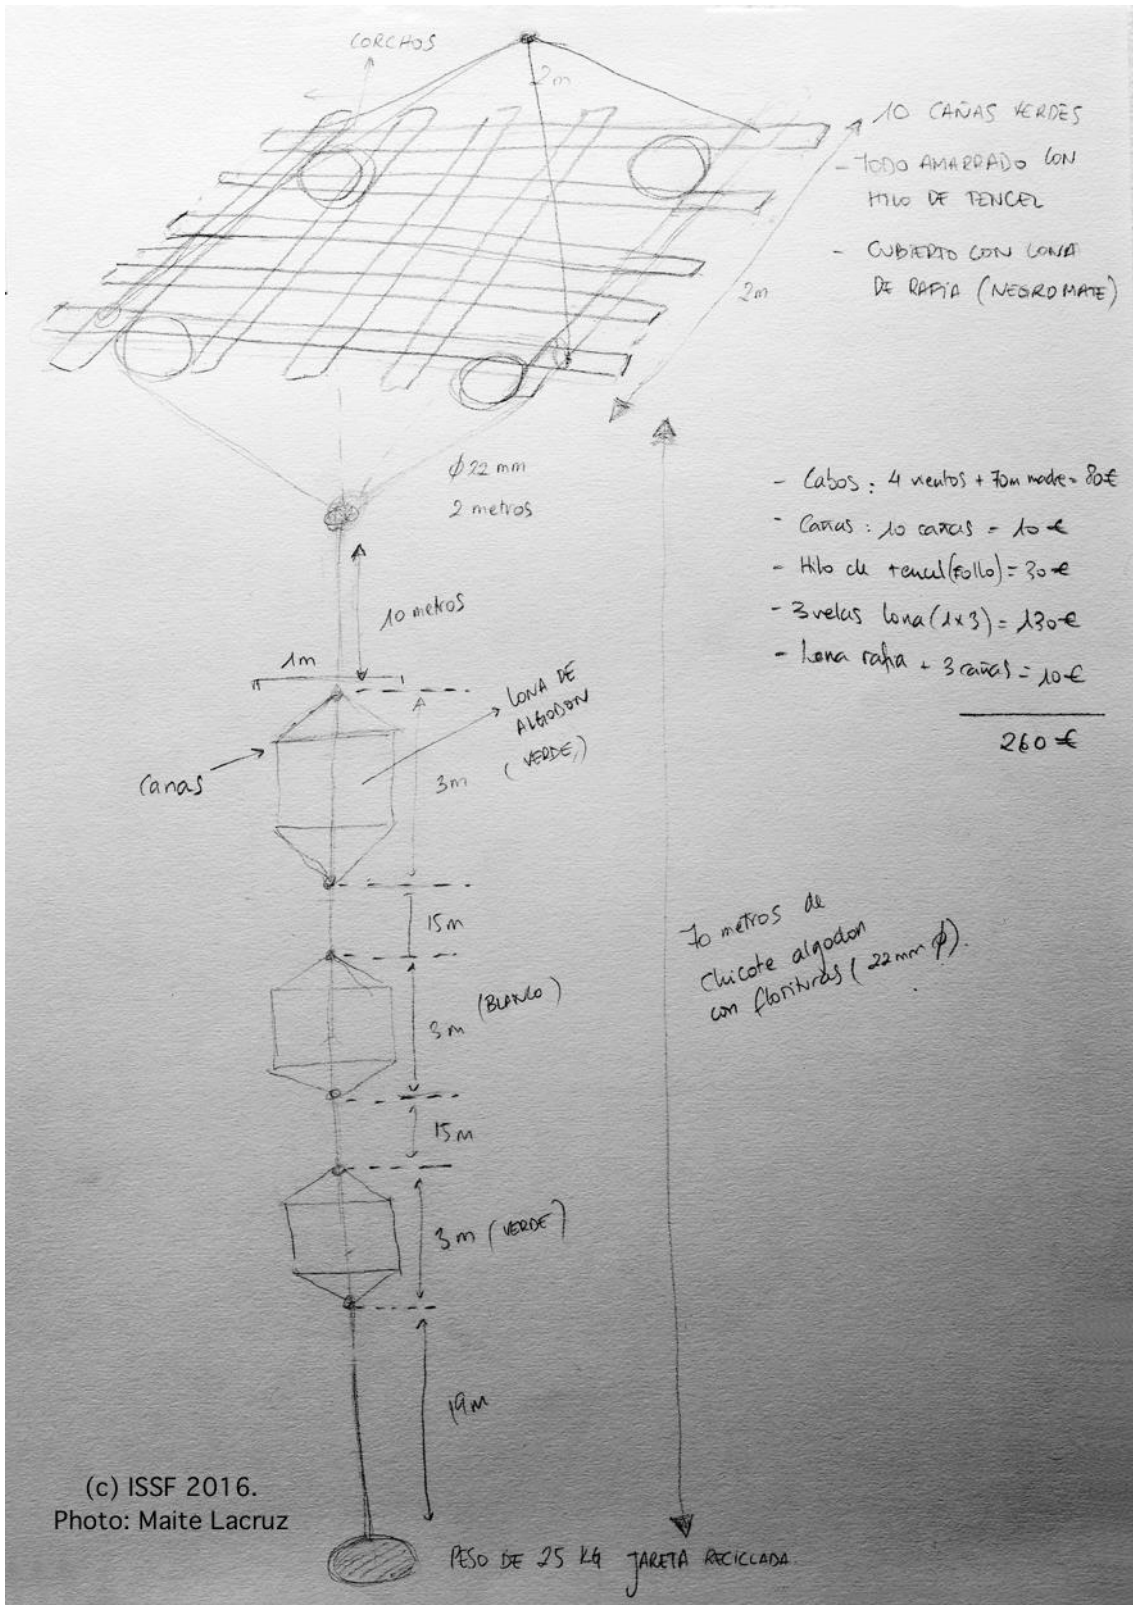 CORCHOS
2m
10 CAÑAS VERDES
- TODO AMARRADO CON
HILO DE TENCEL
- CUBIERTO CON LONA
DE RAFIA (NEGRO MATE)
2m
Ø 22 mm
2 metros
- Cabos: 4 vientos + 70m madre = 80€
- Cañas: 10 cañas = 10€
- Hilo de tencel (rollo) = 30€
- 3 velas lona (1x3) = 130€
- Lona rafia + 3 cañas = 10€
260€
10 metros
1m
LONA DE
ALGODON
(VERDE)
Canas
3m
15m
3m (BLANCO)
15m
3m (VERDE)
19m
70 metros de
Chicote algodon
con florituras (22mm Ø).
PESO DE 25 KG JARETA RECICLADA
(c) ISSF 2016.
Photo: Maite Lacruz